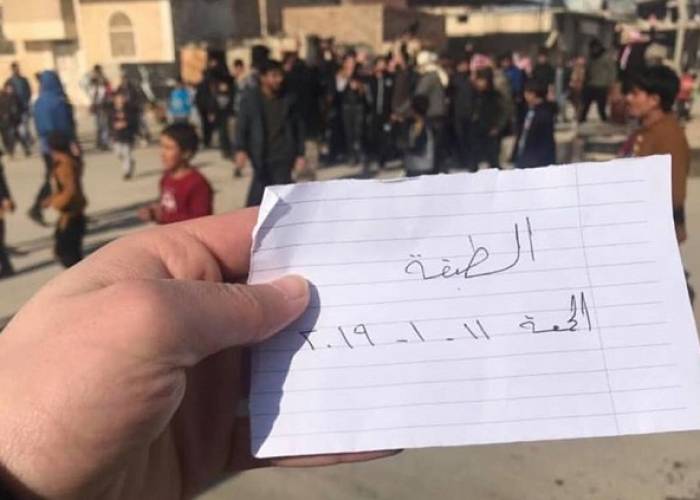 الطبقة
الجمعة ١١ - ١ - ٢٠١٩